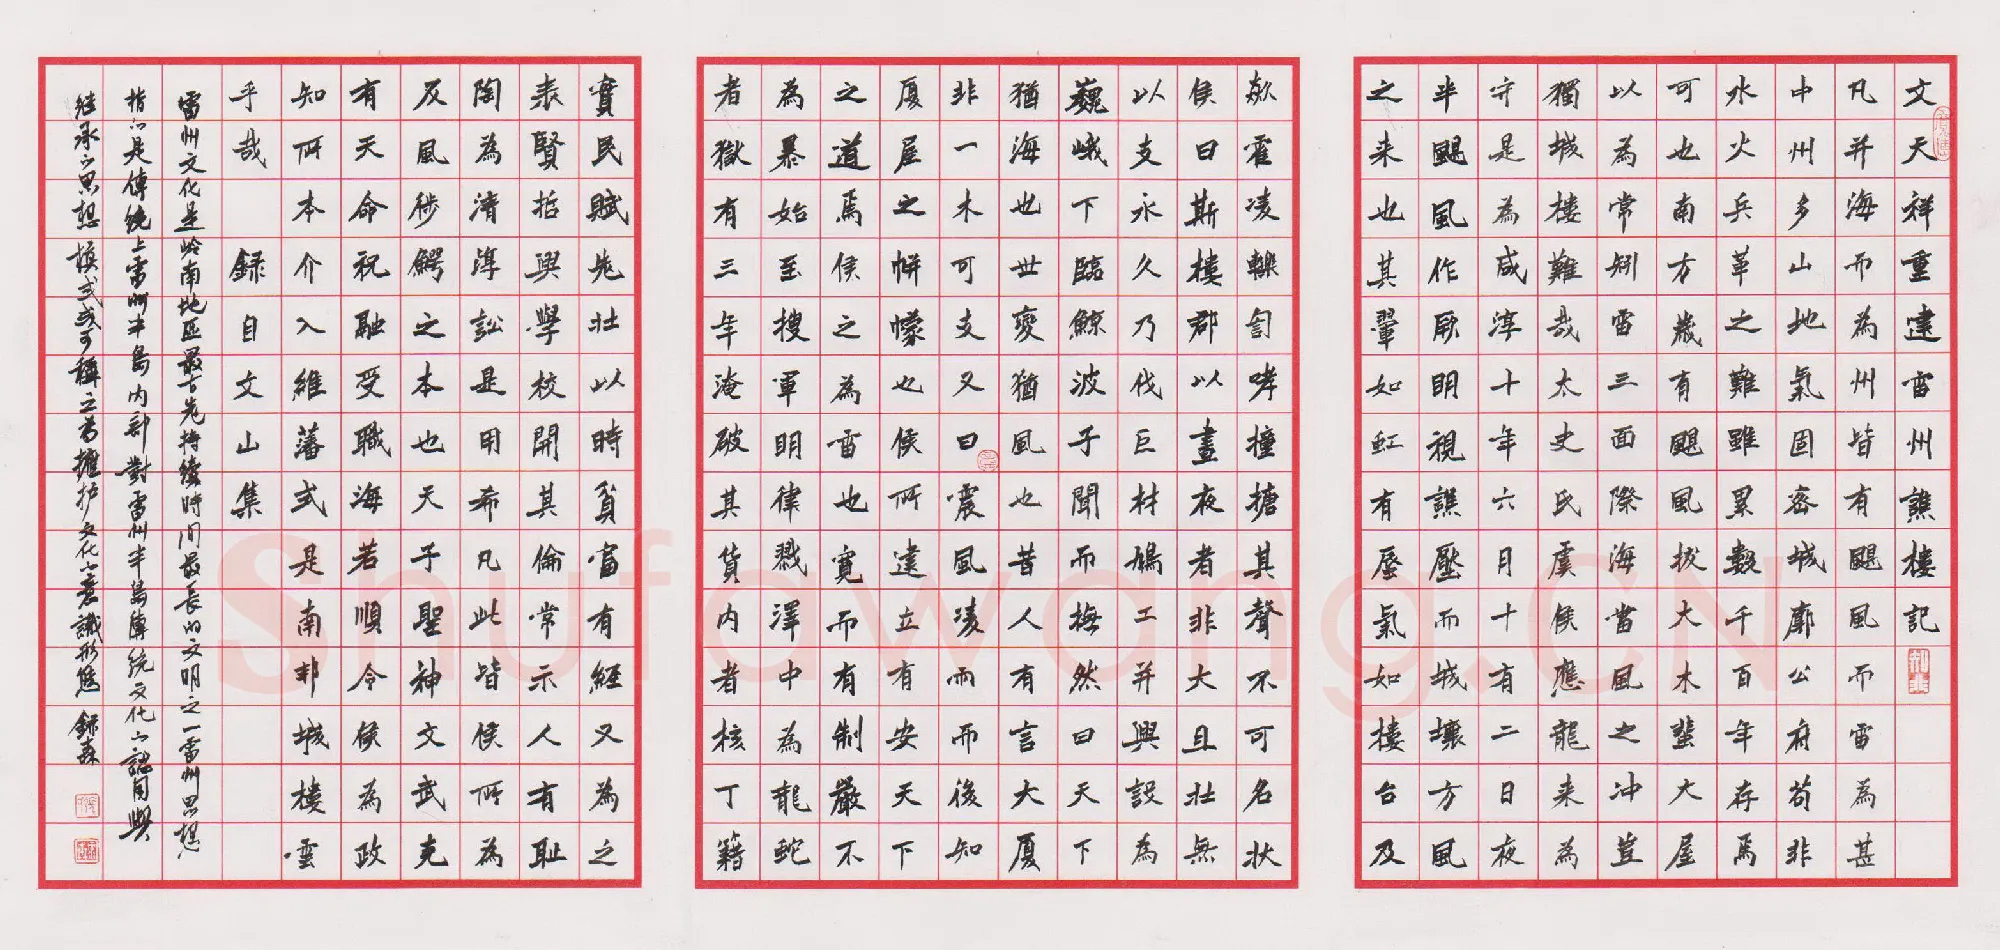 文天祥重建雷州譙樓記
凡并海而為州皆有颶風而雷為甚
中州多山地氣固密城廓公府苟非
水火兵革之難雖累數千百年存焉
可也南方歲有颶風拔大木蜚大屋
以為常矧雷三面際海當風之冲豈
獨城樓難哉太史氏虞侯應龍来為
守是為咸淳十年六月十有二日夜
半颶風作厥明視譙壓而城壤方風
之来也其翬如虹有蜃氣如樓台及
欻霍凌轢訇哮撞搪其聲不可名狀
侯曰斯樓郡以晝夜者非大且壮無
以支永久乃伐巨材鳩工并興設為
巍峨下臨鯨波子聞而撫然曰天下
猶海也世變猶風也昔人有言大厦
非一木可支又曰震風凌雨而後知
厦屋之帡幪也侯所建立有安天下
之道焉侯之為雷也寬而有制嚴不
為暴始至搜軍明律戮澤中為龍蛇
者獄有三年淹破其貨內者核丁籍
實民賦先壮以時貧富有經又為之
表賢哲興學校開其倫常示人有耻
陶為清淳訟是用希凡此皆侯所為
及風徙鰐之本也天子聖神文武克
有天命祝融受職海若順令侯為政
知所本介入維藩式是南邦城樓雲
乎哉 録自文山集
雷州文化是岭南地區最古老持續時间最長的文明之一雷州思想
指的是傳統上雷州半島内部對雷州半島傳統文化的認同與
继承的思想模式或可稱之為擁护文化的意識形態 録森
Shufawang.CN